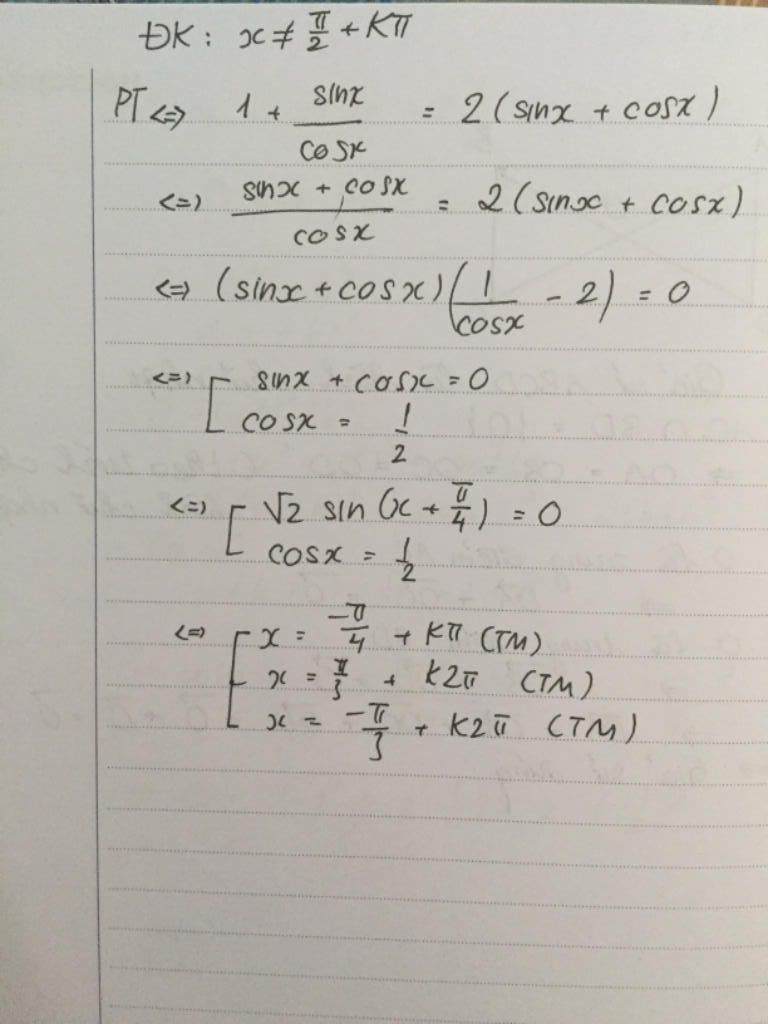 ĐK: x ≠ π/2 + Kπ
PT <=> 1 + sinx/cosx = 2(sinx + cosx)
<=> (sinx + cosx)/cosx = 2(sinx + cosx)
<=> (sinx + cosx)(1/cosx - 2) = 0
<=> [ sinx + cosx = 0
cosx = 1/2
<=> [ √2 sin(x + π/4) = 0
cosx = 1/2
<=> [ x = -π/4 + Kπ (TM)
x = π/3 + K2π (TM)
x = -π/3 + K2π (TM)